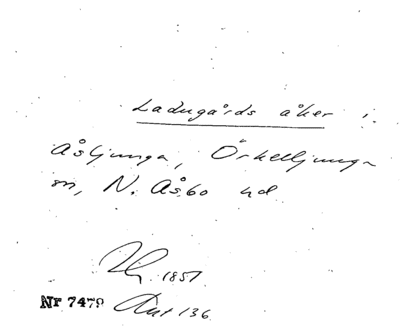 Ladugårds åker i
Åsljunga, Örkelljunga
sn, N. Åsbo hd
1857
Nr 7479 Ant 136